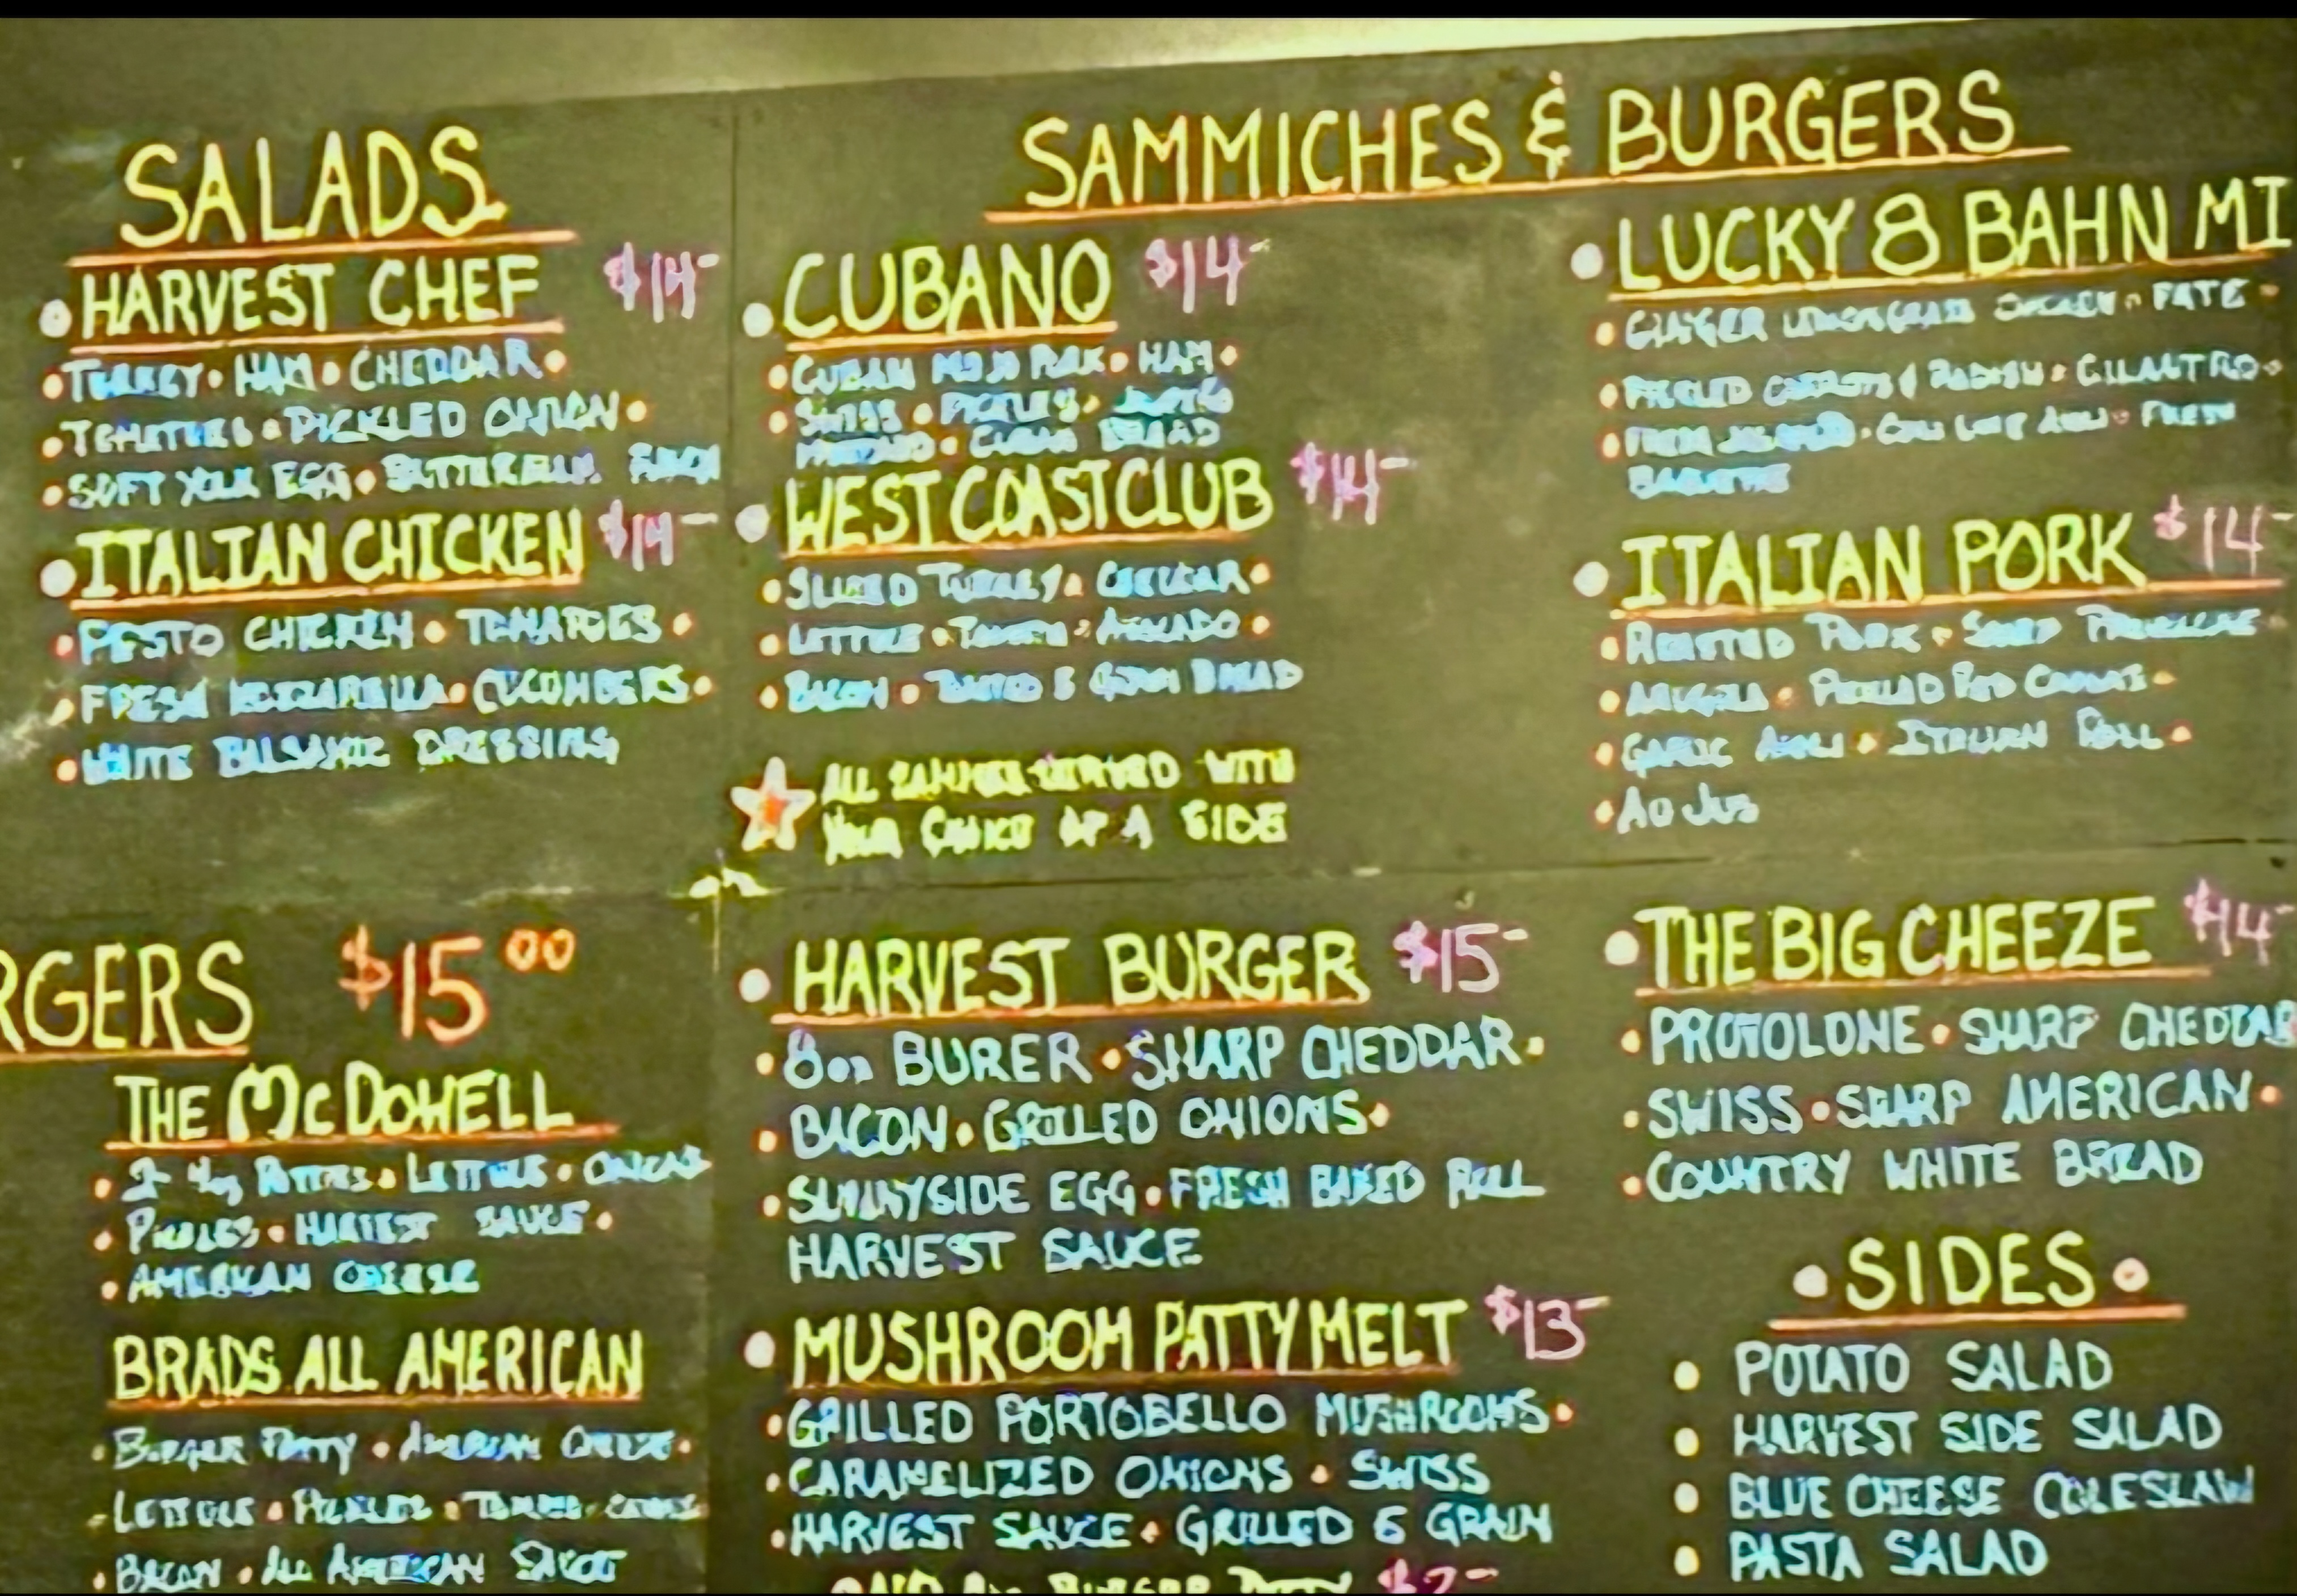 SALADS
HARVEST CHEF $14-
TURKEY • HAM • CHEDDAR •
TOMATOES • PICKLED ONION •
SOFT YOLK EGG • BUTTERMILK RANCH
ITALIAN CHICKEN $14-
PESTO CHICKEN • TOMATOES •
FRESH MOZZARELLA • CUCUMBERS •
WHITE BALSAMIC DRESSING
RGERS $15.00
THE McDOWELL
2- 4oz PATTIES • LETTUCE • ONIONS
PICKLES • HARVEST SAUCE •
AMERICAN CHEESE
BRADS ALL AMERICAN
BURGER PATTY • AMERICAN CHEESE •
LETTUCE • PICKLES •
BACON • ALL AMERICAN SAUCE
SAMMICHES & BURGERS
CUBANO $14-
CUBAN MOJO PORK • HAM •
SWISS • PICKLES •
MUSTARD • CUBAN BREAD
WEST COAST CLUB $14-
SLICED TURKEY • CHEDDAR •
LETTUCE • TOMATO • AVOCADO •
BACON • TOASTED 6 GRAIN BREAD
ALL SAMMIES SERVED WITH
YOUR CHOICE OF A SIDE
LUCKY 8 BAHN MI
GINGER LEMONGRASS CHICKEN • PATE •
PICKLED CARROTS & RADISH • CILANTRO •
FRESH JALAPENO • CHILI LIME AIOLI • FRESH
BAGUETTE
ITALIAN PORK $14-
ROASTED PORK • SHARP PROVOLONE •
ARUGULA • PICKLED RED ONIONS •
GARLIC AIOLI • ITALIAN ROLL •
AU JUS
HARVEST BURGER $15-
8oz BURER • SHARP CHEDDAR •
BACON • GRILLED ONIONS •
SUNNYSIDE EGG • FRESH BAKED ROLL
HARVEST SAUCE
MUSHROOM PATTY MELT $13-
GRILLED PORTOBELLO MUSHROOMS •
CARAMELIZED ONIONS • SWISS
HARVEST SAUCE • GRILLED 6 GRAIN
ADD BURGER PATTY $7-
THE BIG CHEEZE $14-
PROVOLONE • SHARP CHEDDAR
SWISS • SHARP AMERICAN •
COUNTRY WHITE BREAD
• SIDES •
POTATO SALAD
HARVEST SIDE SALAD
BLUE CHEESE COLESLAW
PASTA SALAD